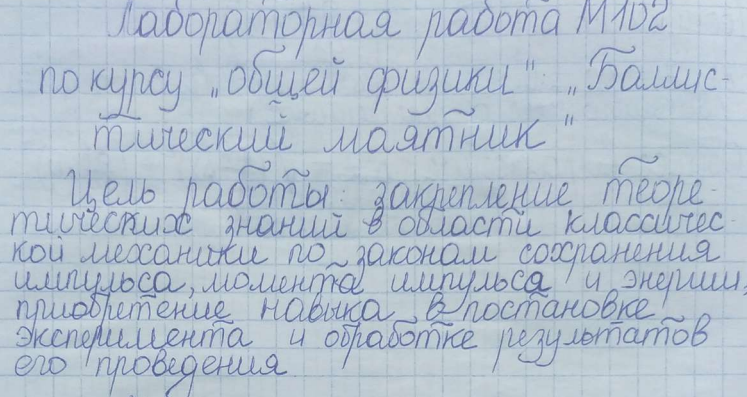 Лабораторная работа М102
по курсу „общей физики" „Баллис-
тический маятник"
Цель работы: закрепление теоре-
тических знаний в области классичес-
кой механики по законам сохранения
импульса, момента импульса и энергии,
приобретение навыка в постановке
эксперимента и обработке результатов
его проведения